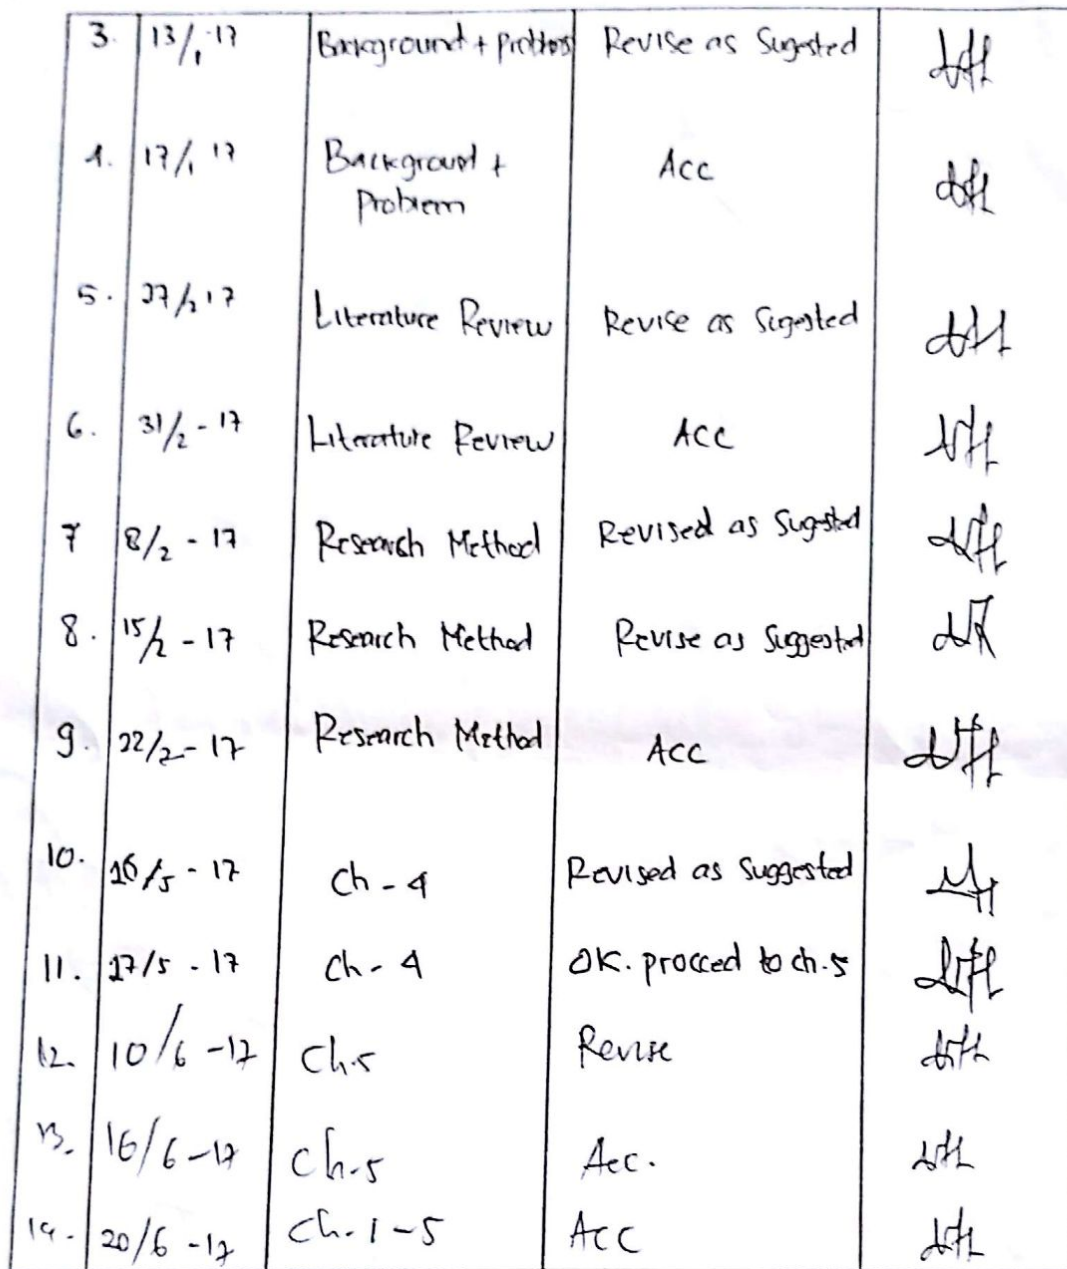 3. 13/1 17 Background + Problems Revise as Sugested
4. 17/1 17 Background + Acc
Problem
5. 27/2 17 Literature Review Revise as Sugested
6. 31/2 - 17 Literature Review ACC
7 8/2 - 17 Research Method Revised as Sugested
8. 15/2 - 17 Research Method Revise as Suggested
9. 22/2 - 17 Research Method ACC
10. 16/5 - 17 Ch - 4 Revised as Suggested
11. 17/5 - 17 Ch - 4 OK. procced to ch.5
12. 10/6 - 17 Ch.5 Revise
13. 16/6 - 17 Ch.5 Acc.
14. 20/6 - 17 Ch. 1 - 5 Acc